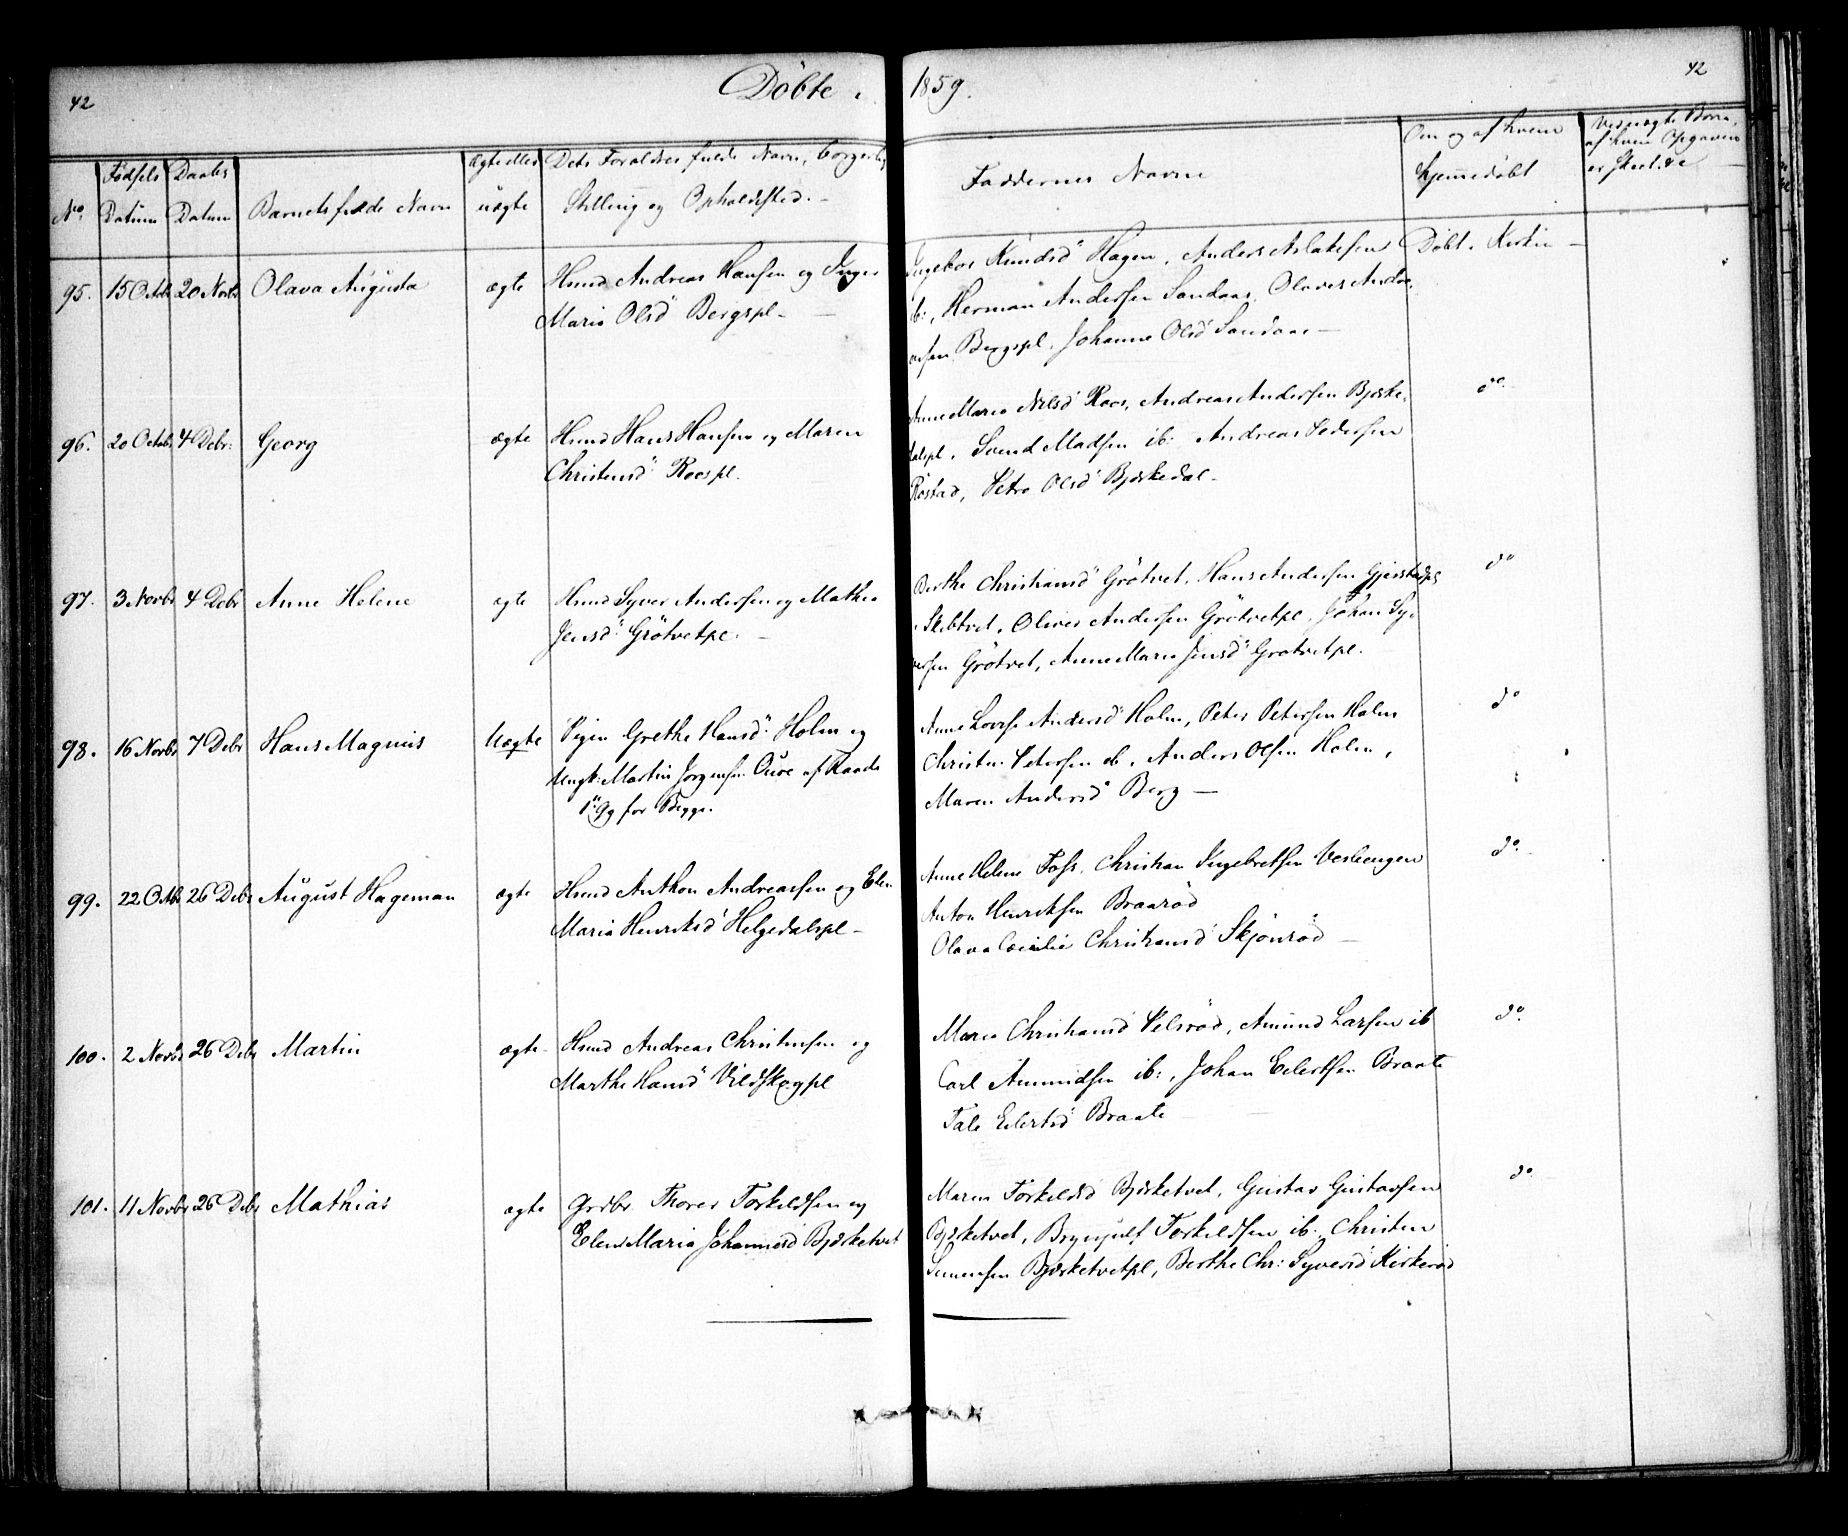 42
Döbte i
1859.
42
No.
Födsels
Datum
Daabs
Datum
Barnets fulde Navn
Ægte eller
uægte
Dets Forældres fulde Navn, borgerlig
Stilling og Opholdssted.
Faddernes Navne
Om og af hvem
hjemmedöbt
Ved uægte Börn,
af hvem Opgaven
er skeet &c
95. 15 Octbr 20 Novbr Olava Augusta ægte Hsmd Andreas Hansen og Inger
Maria Olsd Bergspl
Ingebor Knudsd Hagen, Anders Aslaksen Döbt i Kirken
ib:, Herman Andersen Sandaas, Olaves Andre-
asen Bergspl, Johanne Olsd Sandaas
96. 20 Octobr 4 Debr: Georg ægte Hsmd Hans Hansen og Maren
Christensd Roespl.
Anne Maria Nilsd Roes, Andreas Andersen Bjerke- do
dalspl, Svend Madsen ib: Andreas Pedersen
Röstad, Petra Olsd Bjerkedal
97. 3 Novbr 4 Debr Anne Helene ægte Hsmd Syver Andersen og Mathea
Jensd Grötvetpl.
Berthe Christiansd Grötvet, Hans Andersen do
Skibtvet, Oliver Andersen Grötvetpl, Johan Sy-
versen Grötvet, Anne Maria Jensd Grötvetpl.
98. 16 Novbr 7 Debr Hans Magnus Uægte Pigen Grethe Hansd Holm og
Ungk: Martin Jörgensen Oure af Raade
1ste Gg for Begge.
Anne Lovise Andersd Holm, Peter Petersen Holm do
Christen Petersen ib, Anders Olsen Holm,
Maren Andersd Berg
99. 22 Octbr 26 Debr August Hageman ægte Hsmd Anthon Andreassen og Elen
Maria Henriksd Helgedalspl
Anne Helene Foss, Christian Ingebretsen Vesleengen do
Anton Henriksen Braaröd
Olava Cecilie Christiansd Skjönröd
100. 2 Novbr 26 Debr Martin ægte Hsmd Andreas Christensen og
Marthe Hansd Vildskogpl
Maria Christiansd Velsröd, Amund Larsen ib do
Carl Amundsen ib:, Johan Eilertsen Braate
Tale Eilertsd Braate
101. 11 Novbr 26 Debr Mathias ægte Grdbr Thorer Torkildsen og
Elen Maria Johannesd Bjerketvet
Maren Torkildsd Bjerketvet, Gustav Gustavsen do
Bjerketvet, Brynjulf Torkildsen ib:, Christen
Simensen Bjerketvetpl, Berthe Chr: Syversd Kirkeröd